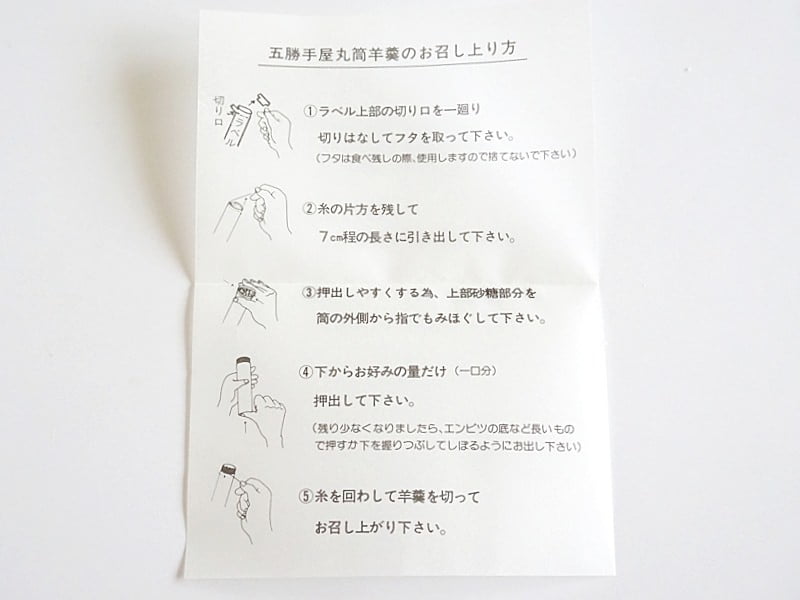 五勝手屋丸筒羊羹のお召し上り方
切り口
ラベル
①ラベル上部の切り口を一廻り
切りはなしてフタを取って下さい。
(フタは食べ残しの際、使用しますので捨てないで下さい)
②糸の片方を残して
7cm程の長さに引き出して下さい。
③押出しやすくする為、上部砂糖部分を
筒の外側から指でもみほぐして下さい。
④下からお好みの量だけ(一口分)
押出して下さい。
(残り少なくなりましたら、エンピツの底など長いもの
で押すか下を握りつぶしてしぼるようにお出し下さい)
⑤糸を回わして羊羹を切って
お召し上がり下さい。